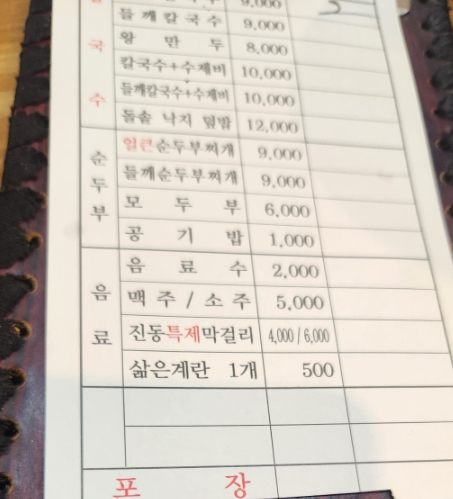 9,000
들깨칼국수 9,000
왕만두 8,000
칼국수+수제비 10,000
들깨칼국수+수제비 10,000
돌솥 낙지 덮밥 12,000
얼큰순두부찌개 9,000
들깨순두부찌개 9,000
모두부 6,000
공기밥 1,000
음료수 2,000
맥주/소주 5,000
진동특제막걸리 4,000/6,000
삶은계란 1개 500
국수
순두부
음료
포장